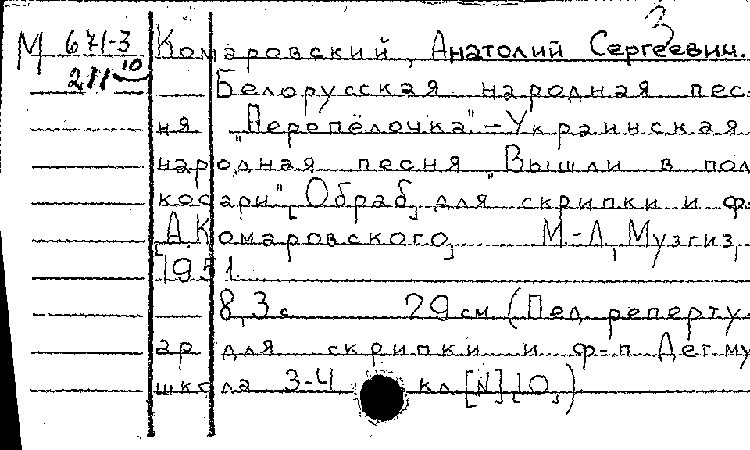 3
М 671-3 Комаровский, Анатолий Сергеевич.
10
211 Белорусская народная пес-
ня "Перепёлочка".-Украинская
народная песня "Вышли в пол
косари" [Обраб] для скрипки и ф-
[А.Комаровского] М-Л, Музгиз,
1951.
8,3 с 29 см (Пед реперту-
ар для скрипки и ф-п Дет.му
школа 3-4 кл [N] [10])